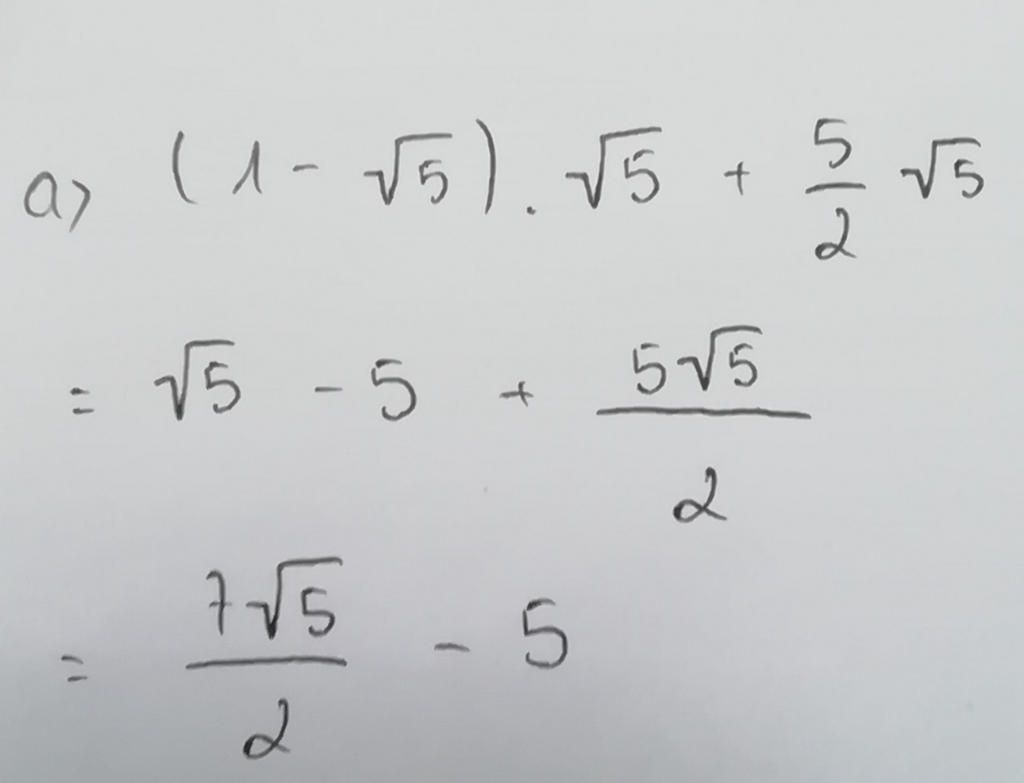 a) (1 - √5) . √5 + 5/2 √5
= √5 - 5 + 5√5/2
= 7√5/2 - 5